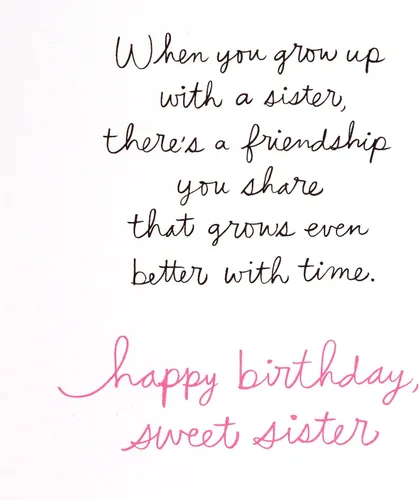 When you grow up
with a sister,
there's a friendship
you share
that grows even
better with time.
happy birthday,
sweet sister